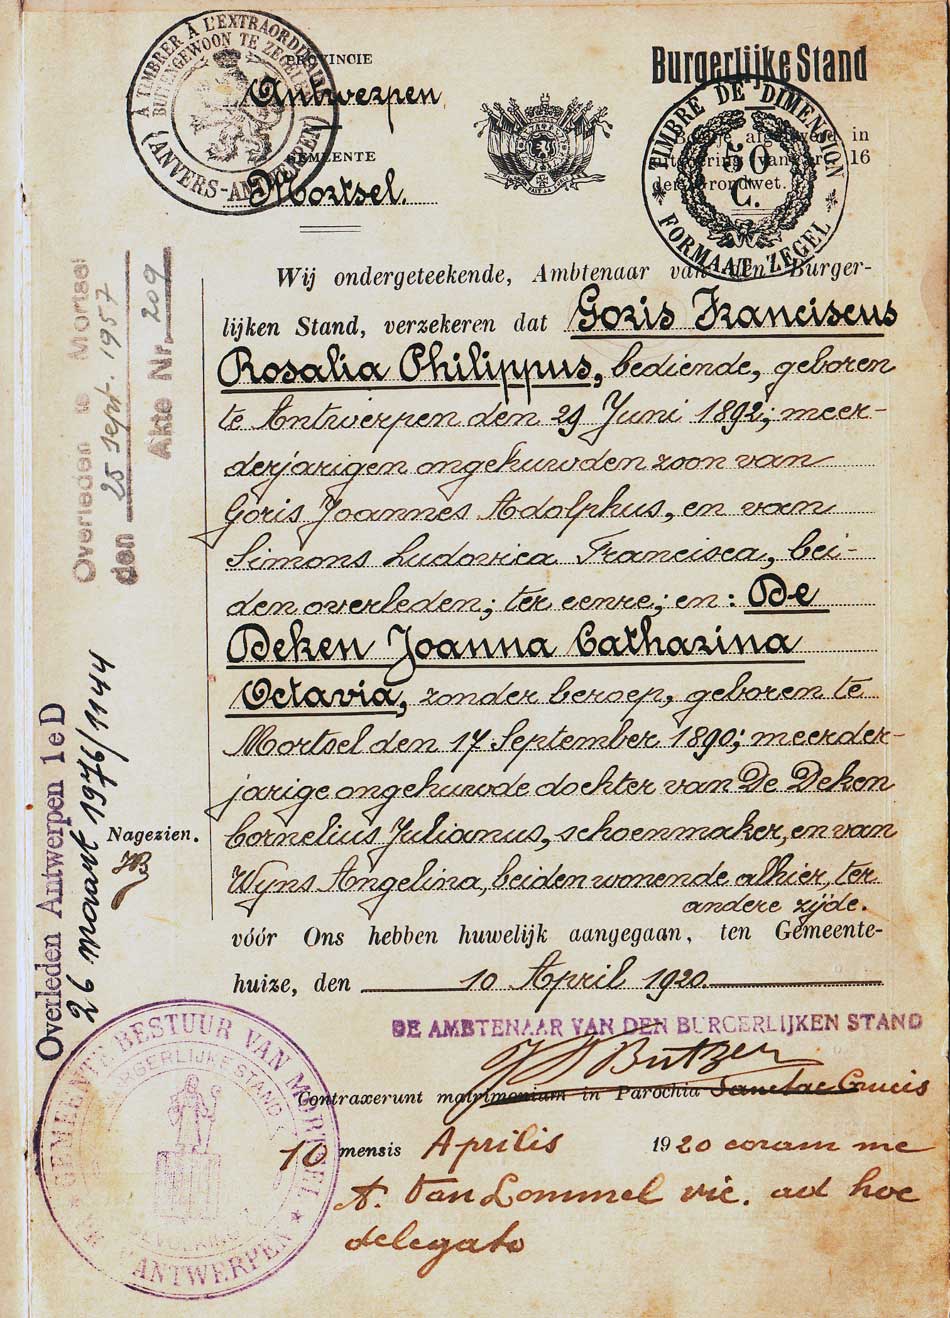 A TIMBRER À L'EXTRAORDINAIRE
BUITENGEWOON TE ZEGELEN
(ANVERS-ANTWERPEN)
PROVINCIE
Antwerpen
GEMEENTE
Mortsel.
Burgerlijke Stand
TIMBRE DE DIMENSION
50
C.
FORMAAT ZEGEL
afgeleverd in
van art. 16
der Grondwet.
Overleden te Mortsel
den 25 sept. 1957
Akte Nr. 209
Wij ondergeteekende, Ambtenaar van den Burger-
lijken Stand, verzekeren dat Goris Franciscus
Rosalia Philippus, bediende, geboren
te Antwerpen den 29 Juni 1892; meer-
derjarigen ongehuwden zoon van
Goris Joannes Adolphus, en van
Simons Ludovica Francisca, bei-
den overleden; ter eenre; en: De
Deken Joanna Catharina
Octavia, zonder beroep, geboren te
Mortsel den 17 September 1890; meerder-
jarige ongehuwde dochter van De Deken
Cornelius Julianus, schoenmaker, en van
Wyns Angelina, beiden wonende alhier, ter
andere zijde.
Overleden Antwerpen 1e D
26 maart 1976/1144
Nagezien.
JB
vóór Ons hebben huwelijk aangegaan, ten Gemeente-
huize, den 10 April 1920.
DE AMBTENAAR VAN DEN BURGERLIJKEN STAND
Butzer
Contraxerunt matrimonium in Parochia Sanctae Crucis
10 mensis Aprilis 1920 coram me
A. Van Lommel vic. ad hoc
delegato
GEMEENTE BESTUUR VAN MORTSEL
BURGERLIJKE STAND
BEVOLKING
ANTWERPEN